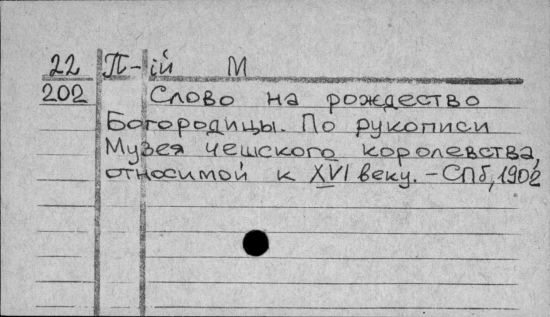 22 П-ій М
202 Слово на рождество
Богородицы. По рукописи
Музея чешского королевства,
относимой к XVI веку. - СПб, 1902